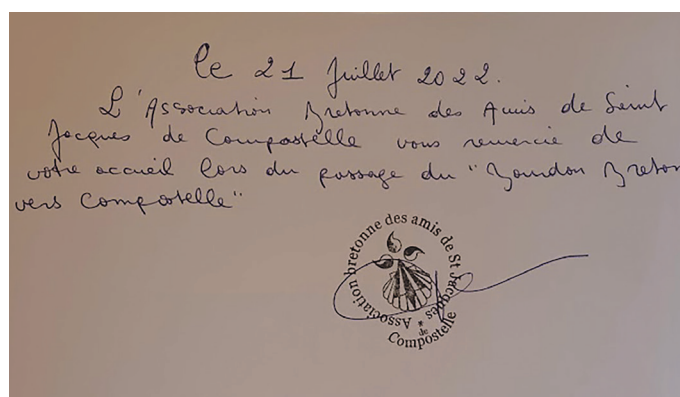 le 21 Juillet 2022.
L'Association Bretonne des Amis de Saint
Jacques de Compostelle vous remercie de
votre accueil lors du passage du "Bourdon Breton
vers Compostelle"
Association bretonne des amis de St Jacques
de
Compostelle